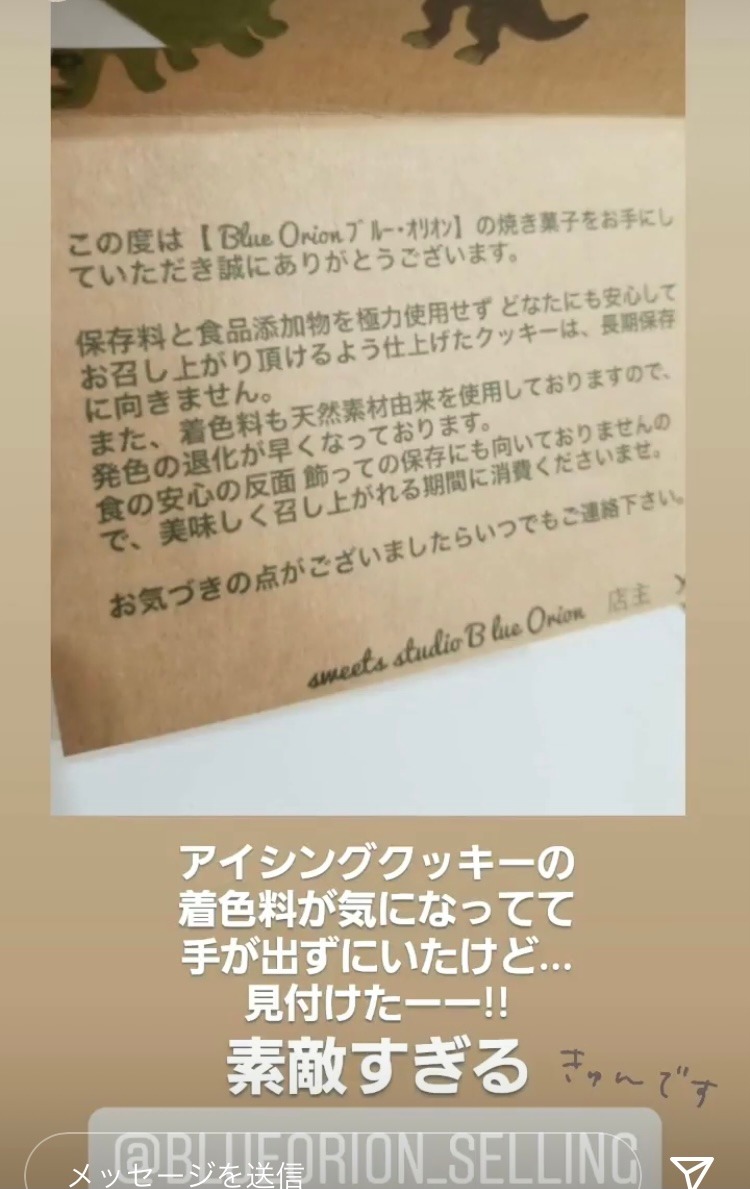 この度は【Blue Orionブルー・オリオン】の焼き菓子をお手にし
ていただき誠にありがとうございます。
保存料と食品添加物を極力使用せず どなたにも安心して
お召し上がり頂けるよう仕上げたクッキーは、長期保存
に向きません。
また、着色料も天然素材由来を使用しておりますので、
発色の退化が早くなっております。
食の安心の反面 飾っての保存にも向いておりませんの
で、美味しく召し上がれる期間に消費くださいませ。
お気づきの点がございましたらいつでもご連絡下さい。
sweets studio Blue Orion 店主
アイシングクッキーの
着色料が気になってて
手が出ずにいたけど...
見付けたーー!!
素敵すぎる
きゅんです
@BLUEORION_SELLING
メッセージを送信